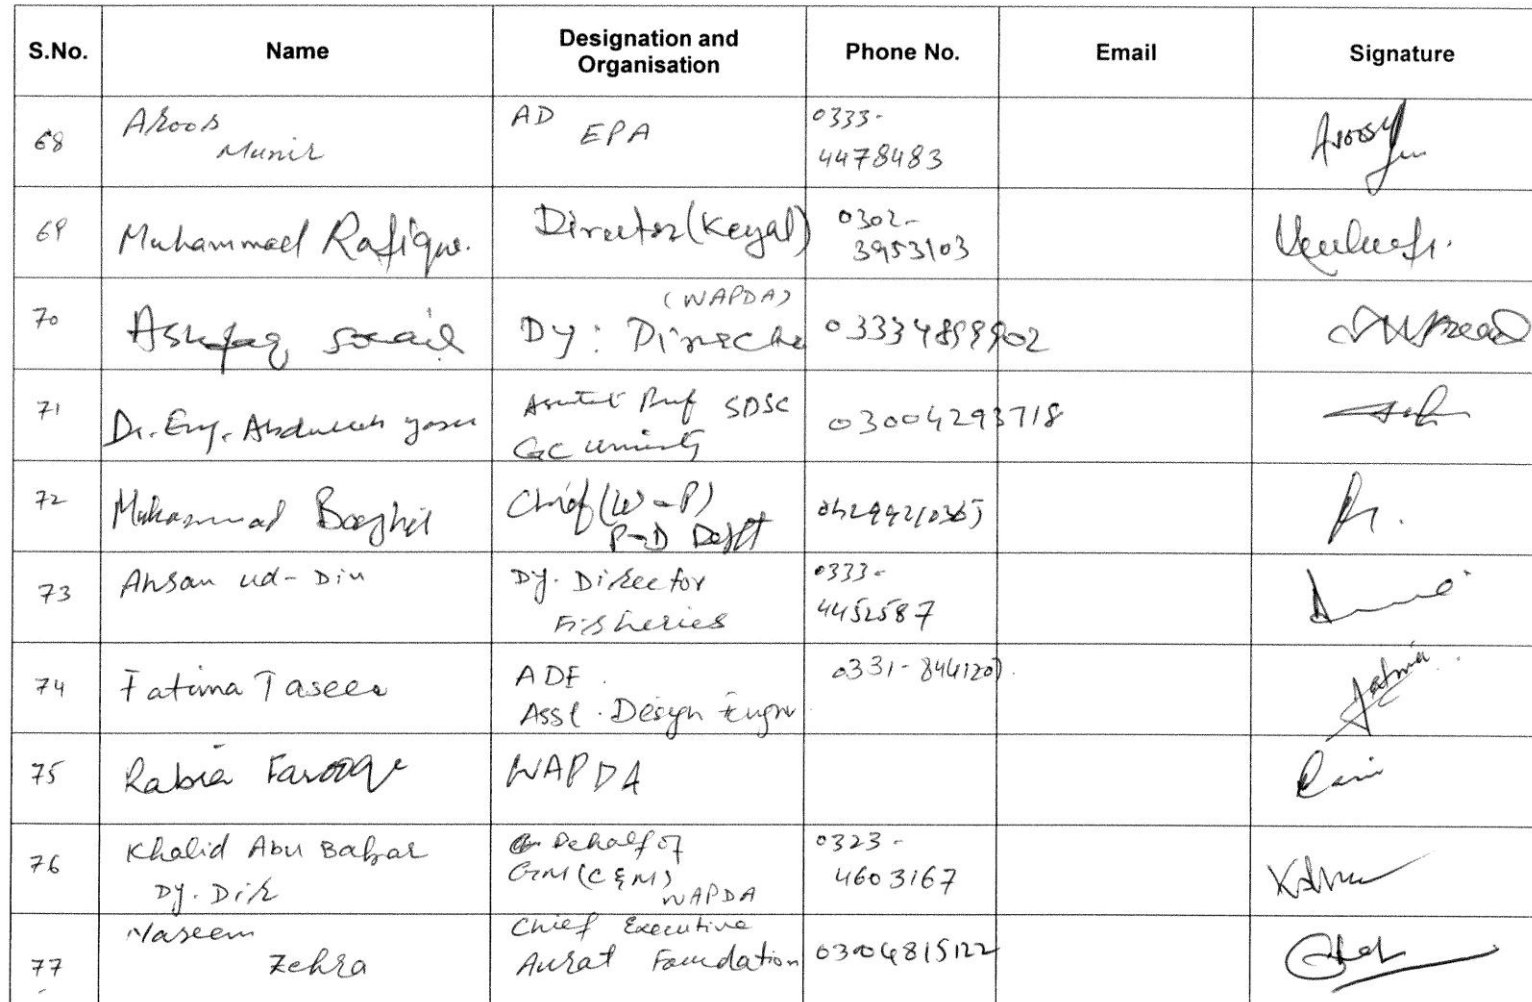 S.No. Name Designation and Organisation Phone No. Email Signature
68 Aroos Munir AD EPA 0333-4478483
69 Muhammad Rafique. Director (Keyal) 0302-3953103
70 Ashfaq (WAPDA) Dy: Director 03334899902
71 Dr. Eng. Abdullah Yasar SDSC GC 03004293718
72 Muhammad Chief (W-P) P-D Deptt
73 Ahsan ud-Din Dy. Director Fisheries 0333-4452587
74 Fatima Taseer ADE. Asst. Design Engr 0331-8441207.
75 Rabia Farooqi WAPDA
76 Khalid Abu Bakar Dy. Dir Behalf of GM (C&M) WAPDA 0323-4603167
77 Naseem Zehra Chief Executive Aurat Foundation 03004815122